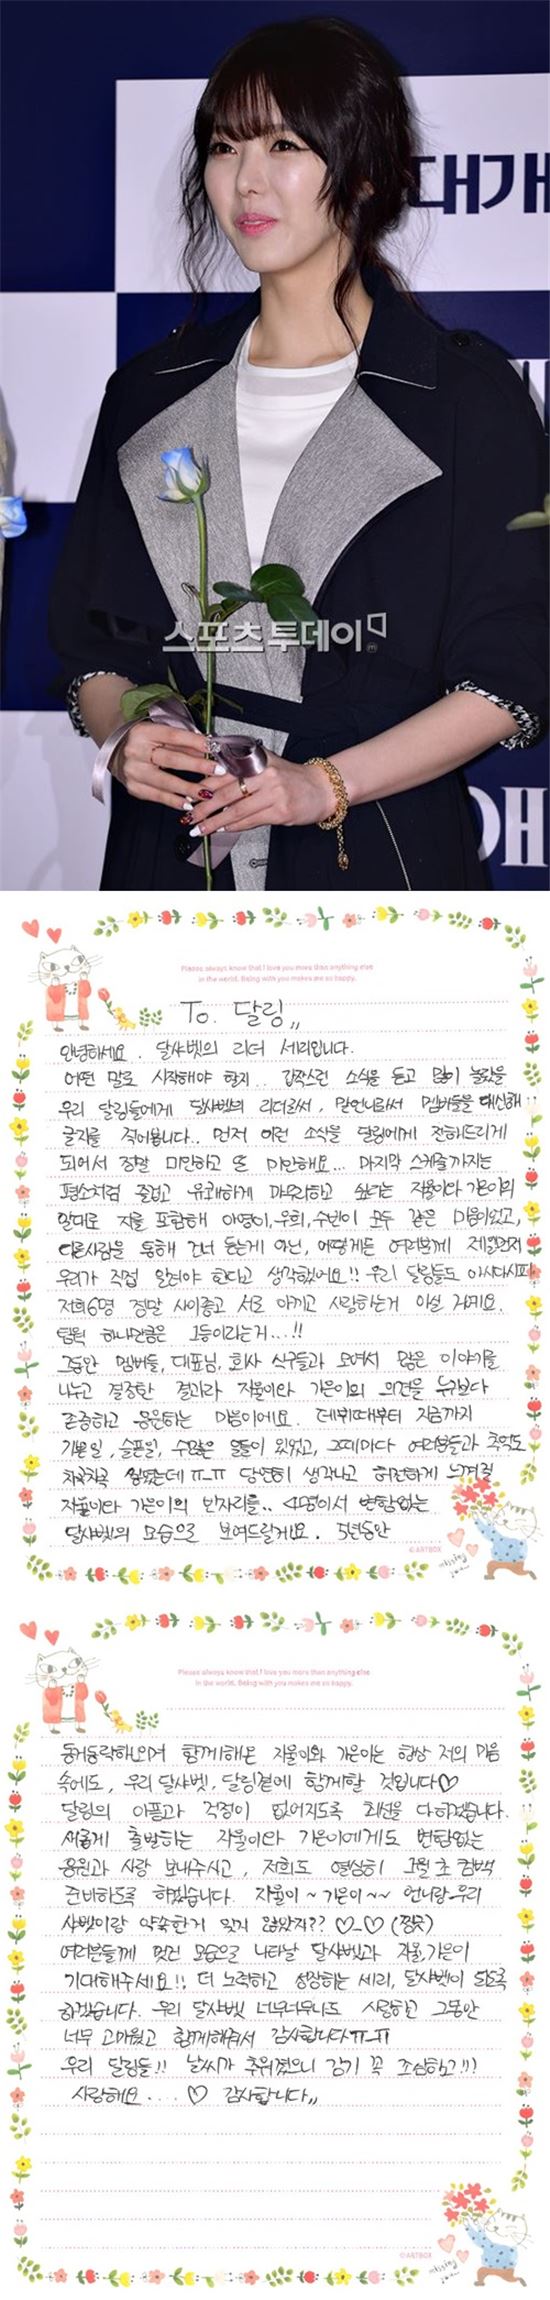 대개
스포츠투데이
Please always know that I love you more than anything else
in the world. Being with you makes me so happy.
To. 달링,,
안녕하세요. 달샤벳의 리더 세리입니다.
어떤 말로 시작해야 할지.. 갑작스런 소식을 듣고 많이 놀랐을
우리 달링들에게 달샤벳의 리더로써, 맏언니로써 멤버들을 대신해
글자를 적어봅니다.. 먼저 이런 소식을 달링에게 전해드리게
되어서 정말 미안하고 또 미안해요... 마지막 스케줄까지는
평소처럼 즐겁고 유쾌하게 마무리하고 싶다는 지율이와 가은이의
말대로 저를 포함해 아영이,우희,수빈이 모두 같은 마음이었고,
다른사람을 통해 건너 듣는게 아닌, 어떻게든 여러분께 제일먼저
우리가 직접 알려야 한다고 생각했어요!! 우리 달링들도 아시다시피
저희6명 정말 사이좋고 서로 아끼고 사랑하는거 아실 거예요.
팀웍 하나만큼은 1등이라는거...!!
그동안 멤버들, 대표님, 회사 식구들과 모여서 많은 이야기를
나누고 결정한 결과라 지율이와 가은이의 의견을 누구보다
존중하고 응원하는 마음이에요. 데뷔때부터 지금까지
기쁜일, 슬픈일, 수많은 일들이 있었고, 그때마다 여러분들과 추억도
차곡차곡 쌓였는데 ㅠ_ㅠ 당연히 생각나고 허전하게 느껴질
지율이와 가은이의 빈자리를.. 4명이서 변함없는
달샤벳의 모습으로 보여드릴게요. 5년동안
©ARTBOX
missing you...
Please always know that I love you more than anything else
in the world. Being with you makes me so happy.
동거동락하며 함께해온 지율이와 가은이는 항상 저의 마음
속에도, 우리 달샤벳, 달링곁에 함께할 것입니다♡
달링의 아픔과 걱정이 없어지도록 최선을 다하겠습니다.
새롭게 출발하는 지율이와 가은이에게도 변함없는
응원과 사랑 보내주시고, 저희도 열심히 1월 초 컴백
준비하도록 하겠습니다. 지율이~ 가은이~~ 언니랑 우리
샤벳이랑 약속한거 잊지 않았지?? ♡_♡ (찡긋)
여러분들께 멋진 모습으로 나타날 달샤벳과 지율,가은이
기대해주세요!! 더 노력하고 성장하는 세리, 달샤벳이 되도록
하겠습니다. 우리 달샤벳 너무너무나도 사랑하고 그동안
너무 고마웠고 함께해줘서 감사합니다ㅠ_ㅠ
우리 달링들!! 날씨가 추워졌으니 감기 꼭 조심하고!!!
사랑해요.... ♡ 감사합니다,,
©ARTBOX
missing you...